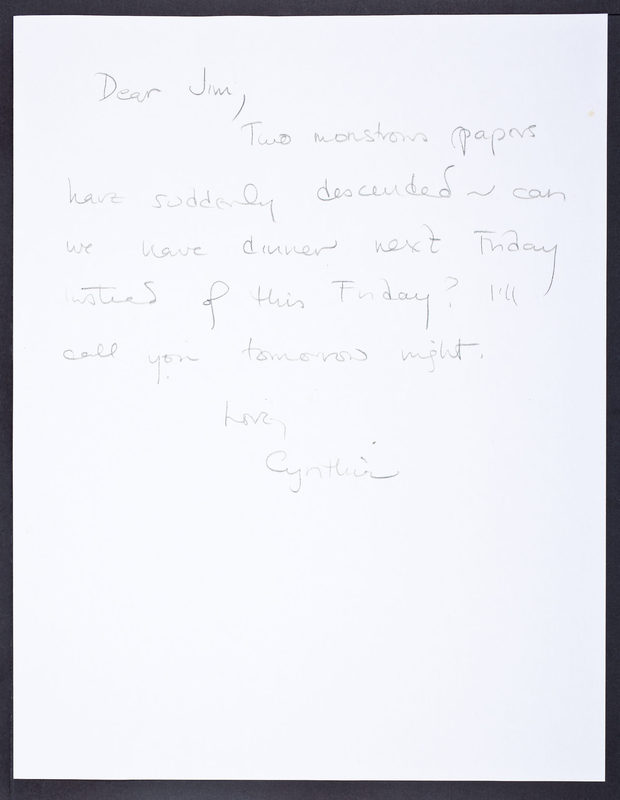 Dear Jim,
Two monstrous papers
have suddenly descended ~ can
we have dinner next Friday
instead of this Friday? I'll
call you tomorrow night.
Love,
Cynthia